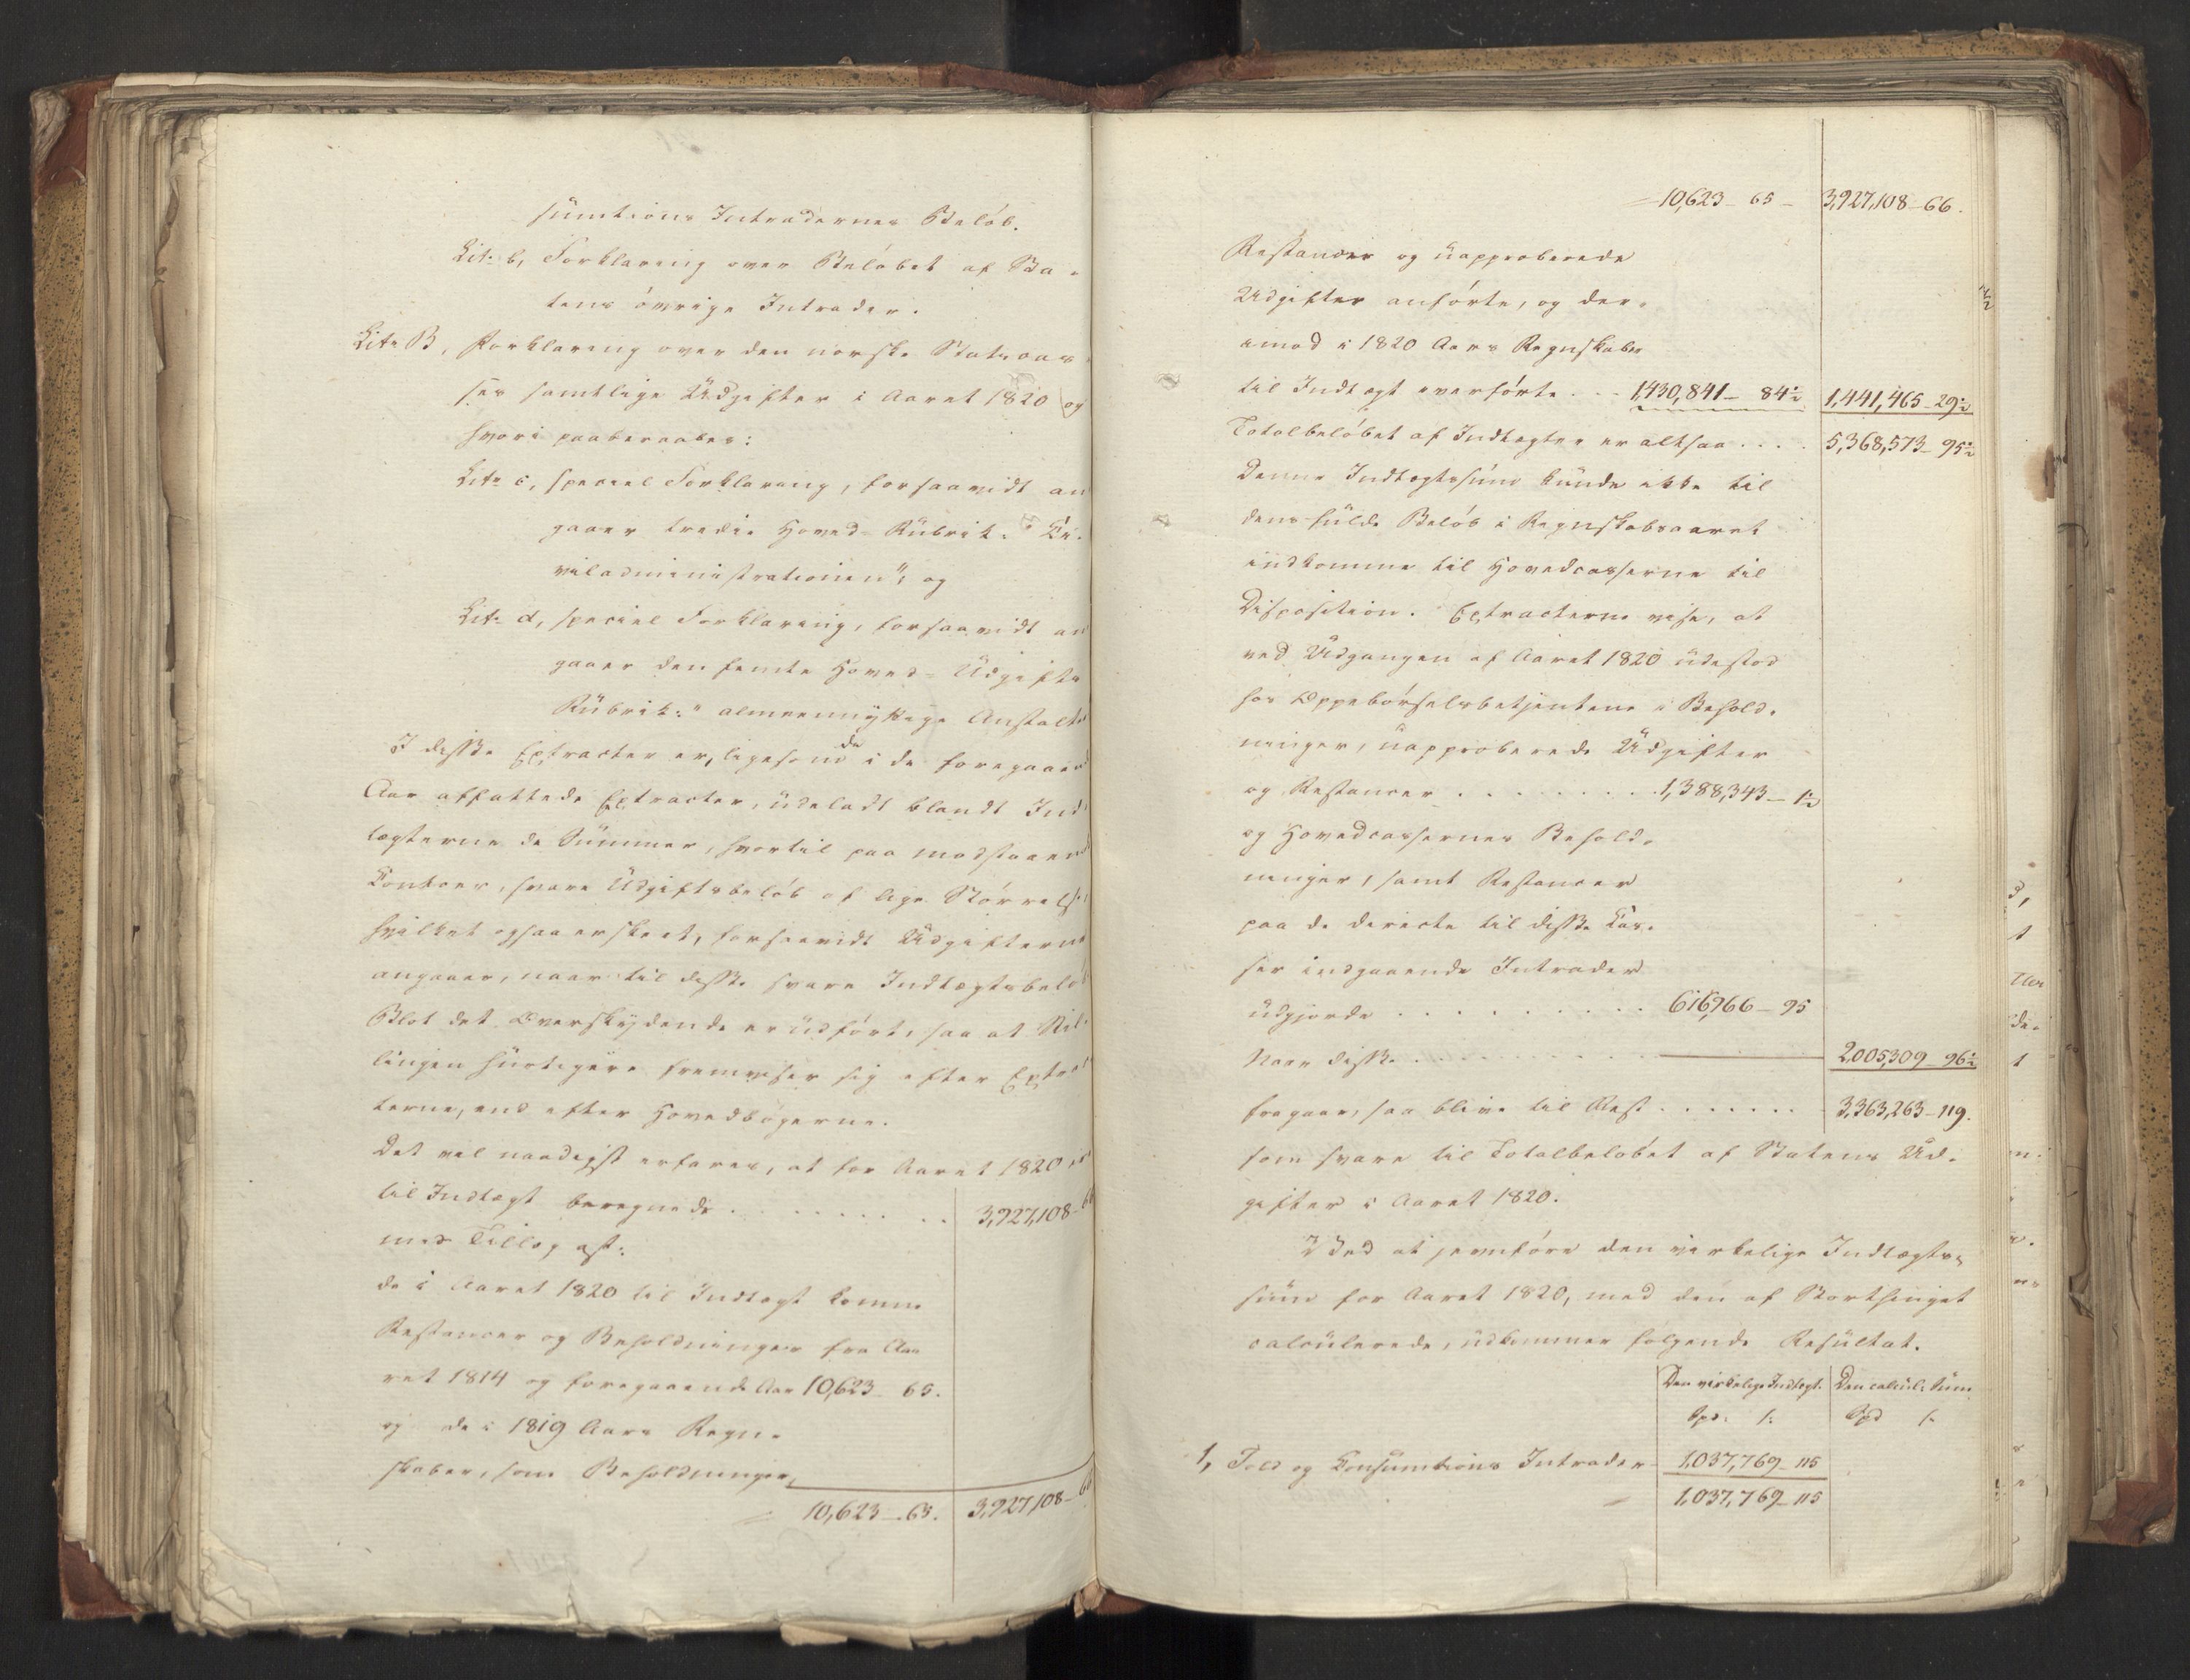 sumtions Intradernes Beløb.
Litr b, Forklaring over Beløbet af Sta-
tens øvrige Intrader.
Litr B, Forklaring over den norske Statscas-
ses samtlige Udgifter i Aaret 1820 og
hvori paaberaabes:
Litr c, speciel Forklaring, forsaavidt an
gaaer tredie Hoved-Rubrik: "Ci-
viladministrationen", og
Litr d, speciel Forklaring, forsaavidt an
gaaer den femte Hoved-Udgifts
Rubrik: "almeennyttige Anstalte
I disse Extracter er, ligesom de i de foregaaend
Aar affattede Extracter, udeladt blandt Ind
tægterne de Summer, hvortil paa modstaaend
Contoer, svare Udgiftsbeløb af lige Størrelse
hvilket ogsaa er skeet, forsaavidt Udgifterne
angaaer, naar til disse svare Indtægtsbeløb
Blot det Overskydende er udført, saa at Stil-
lingen hurtigere fremviser sig efter Extrac
terne, end efter Hovedbøgerne.
Det vil naadigst erfares, at for Aaret 1820 er
til Indtægt beregnede . . . . . . . . 3,927,108-66
med Tillæg af:
de i Aaret 1820 til Indtægt komne
Restancer og Beholdninger fra Aa-
ret 1814 og foregaaende Aar 10,623 65.
og de i 1819 Aars Regn-
skaber, som Beholdninger,
10,623-65. 3,927,108-66
10,623-65- 3,927,108-66.
Restancer og uapproberede
Udgifter anførte, og der-
imod i 1820 Aars Regnskaber
til Indtægt overførte . . . 1,430,841-84½ 1,441,465-29½
Totalbeløbet af Indtægter er altsaa . . . . 5,368,573-95½
Denne Indtægtssum kunde ikke til
dens fulde Beløb i Regnskabsaaret
indkomme til Hovedcasserne til
Disposition. Extracterne vise, at
ved Udgangen af Aaret 1820 udestod
hos Oppebørselsbetjentene i Behold-
ninger, uapproberede Udgifter
og Restancer . . . . . . . . 1,388,343-1½
og Hovedcassernes Behold-
ninger, samt Restancer
paa de directe til disse Cas-
ser indgaaende Intrader
udgjorde . . . . . . . . . 616,966-95
Naar disse . . . . . . 2,005,309-96½
fragaaer, saa blive til Rest . . . . . . . 3,363,263-119.
som svare til Totalbeløbet af Statens Ud-
gifter i Aaret 1820.
Ved at jevnføre den virkelige Indtægts-
sum for Aaret 1820, med den af Storthinget
calculerede, udkommer følgende Resultat.
Den virkelige Indtægt. Den calcul: Sum
Spd: s: Spd s:
1, Told og Consumtions Intrader 1,037,769-115
1,037,769-115